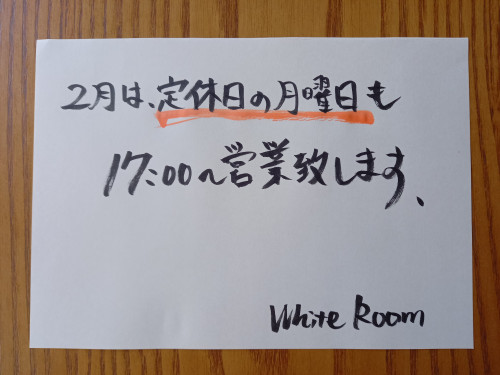 2月は、定休日の月曜日も
17:00〜営業致します、
White Room